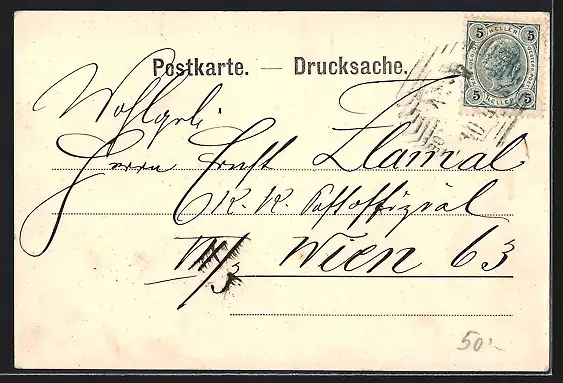 Postkarte. — Drucksache.
5 HELLER 5
5 HELLER 5
Wohlgeb.
Herrn Ernst Zlamal
K. K. Postoffizial
VII/3 Wien 63
50.-